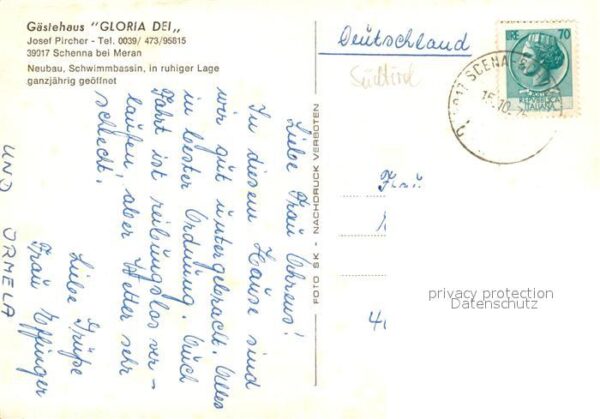 Gästehaus "GLORIA DEI„
Josef Pircher - Tel. 0039/ 473/95815
39017 Schenna bei Meran
Neubau, Schwimmbassin, in ruhiger Lage
ganzjährig geöffnet
Liebe Frau Ahrens!
In diesem Hause sind
wir gut untergebracht. Alles
in bester Ordnung. Auch
Fahrt ist reibungslos ver-
laufen, aber Wetter sehr
schlecht.
Liebe Grüße
Frau Effinger
UND ORMELA
FOTO SK - NACHDRUCK VERBOTEN
Deutschland
Südtirol
LIRE 70
REPUBBLICA
ITALIANA
SCENA
15.10.
Frau
privacy protection
Datenschutz